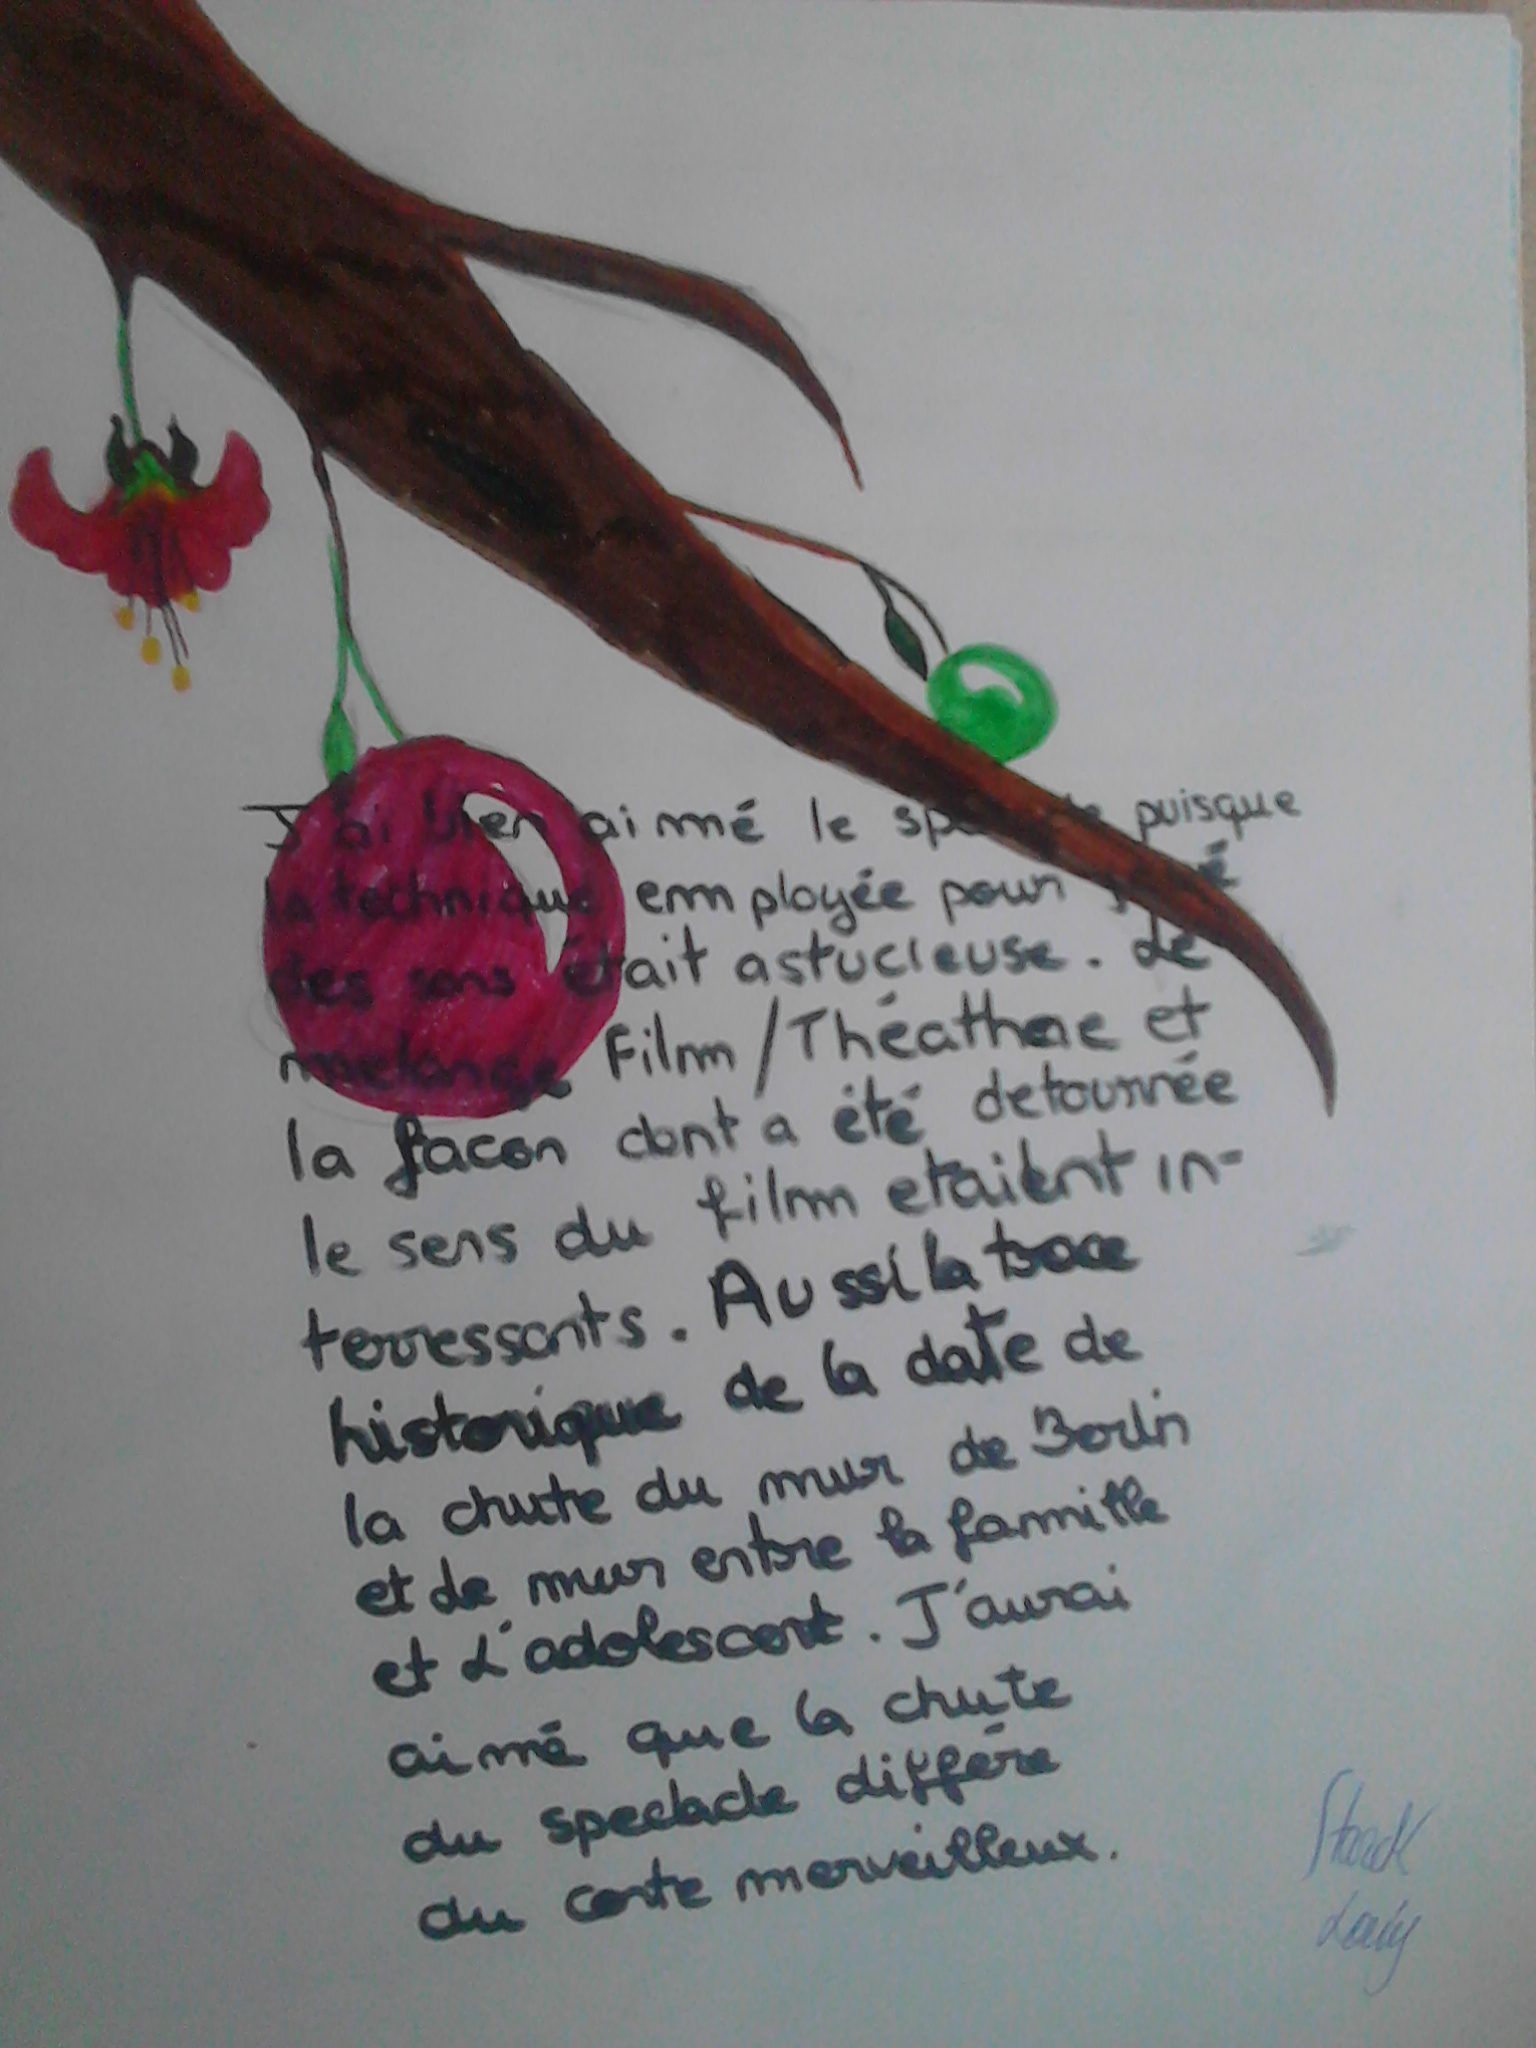 J'ai bien aimé le spectacle puisque
la technique employée pour
des sons était astucieuse. Le
melange Film/Théathre et
la facon dont a été detournée
le sens du film etaient in-
terressants. Aussi la trace
historique de la date de
la chute du mur de Berlin
et de mur entre la famille
et l'adolescent. J'aurai
aimé que la chute
du spectacle différe
du conte merveilleux.